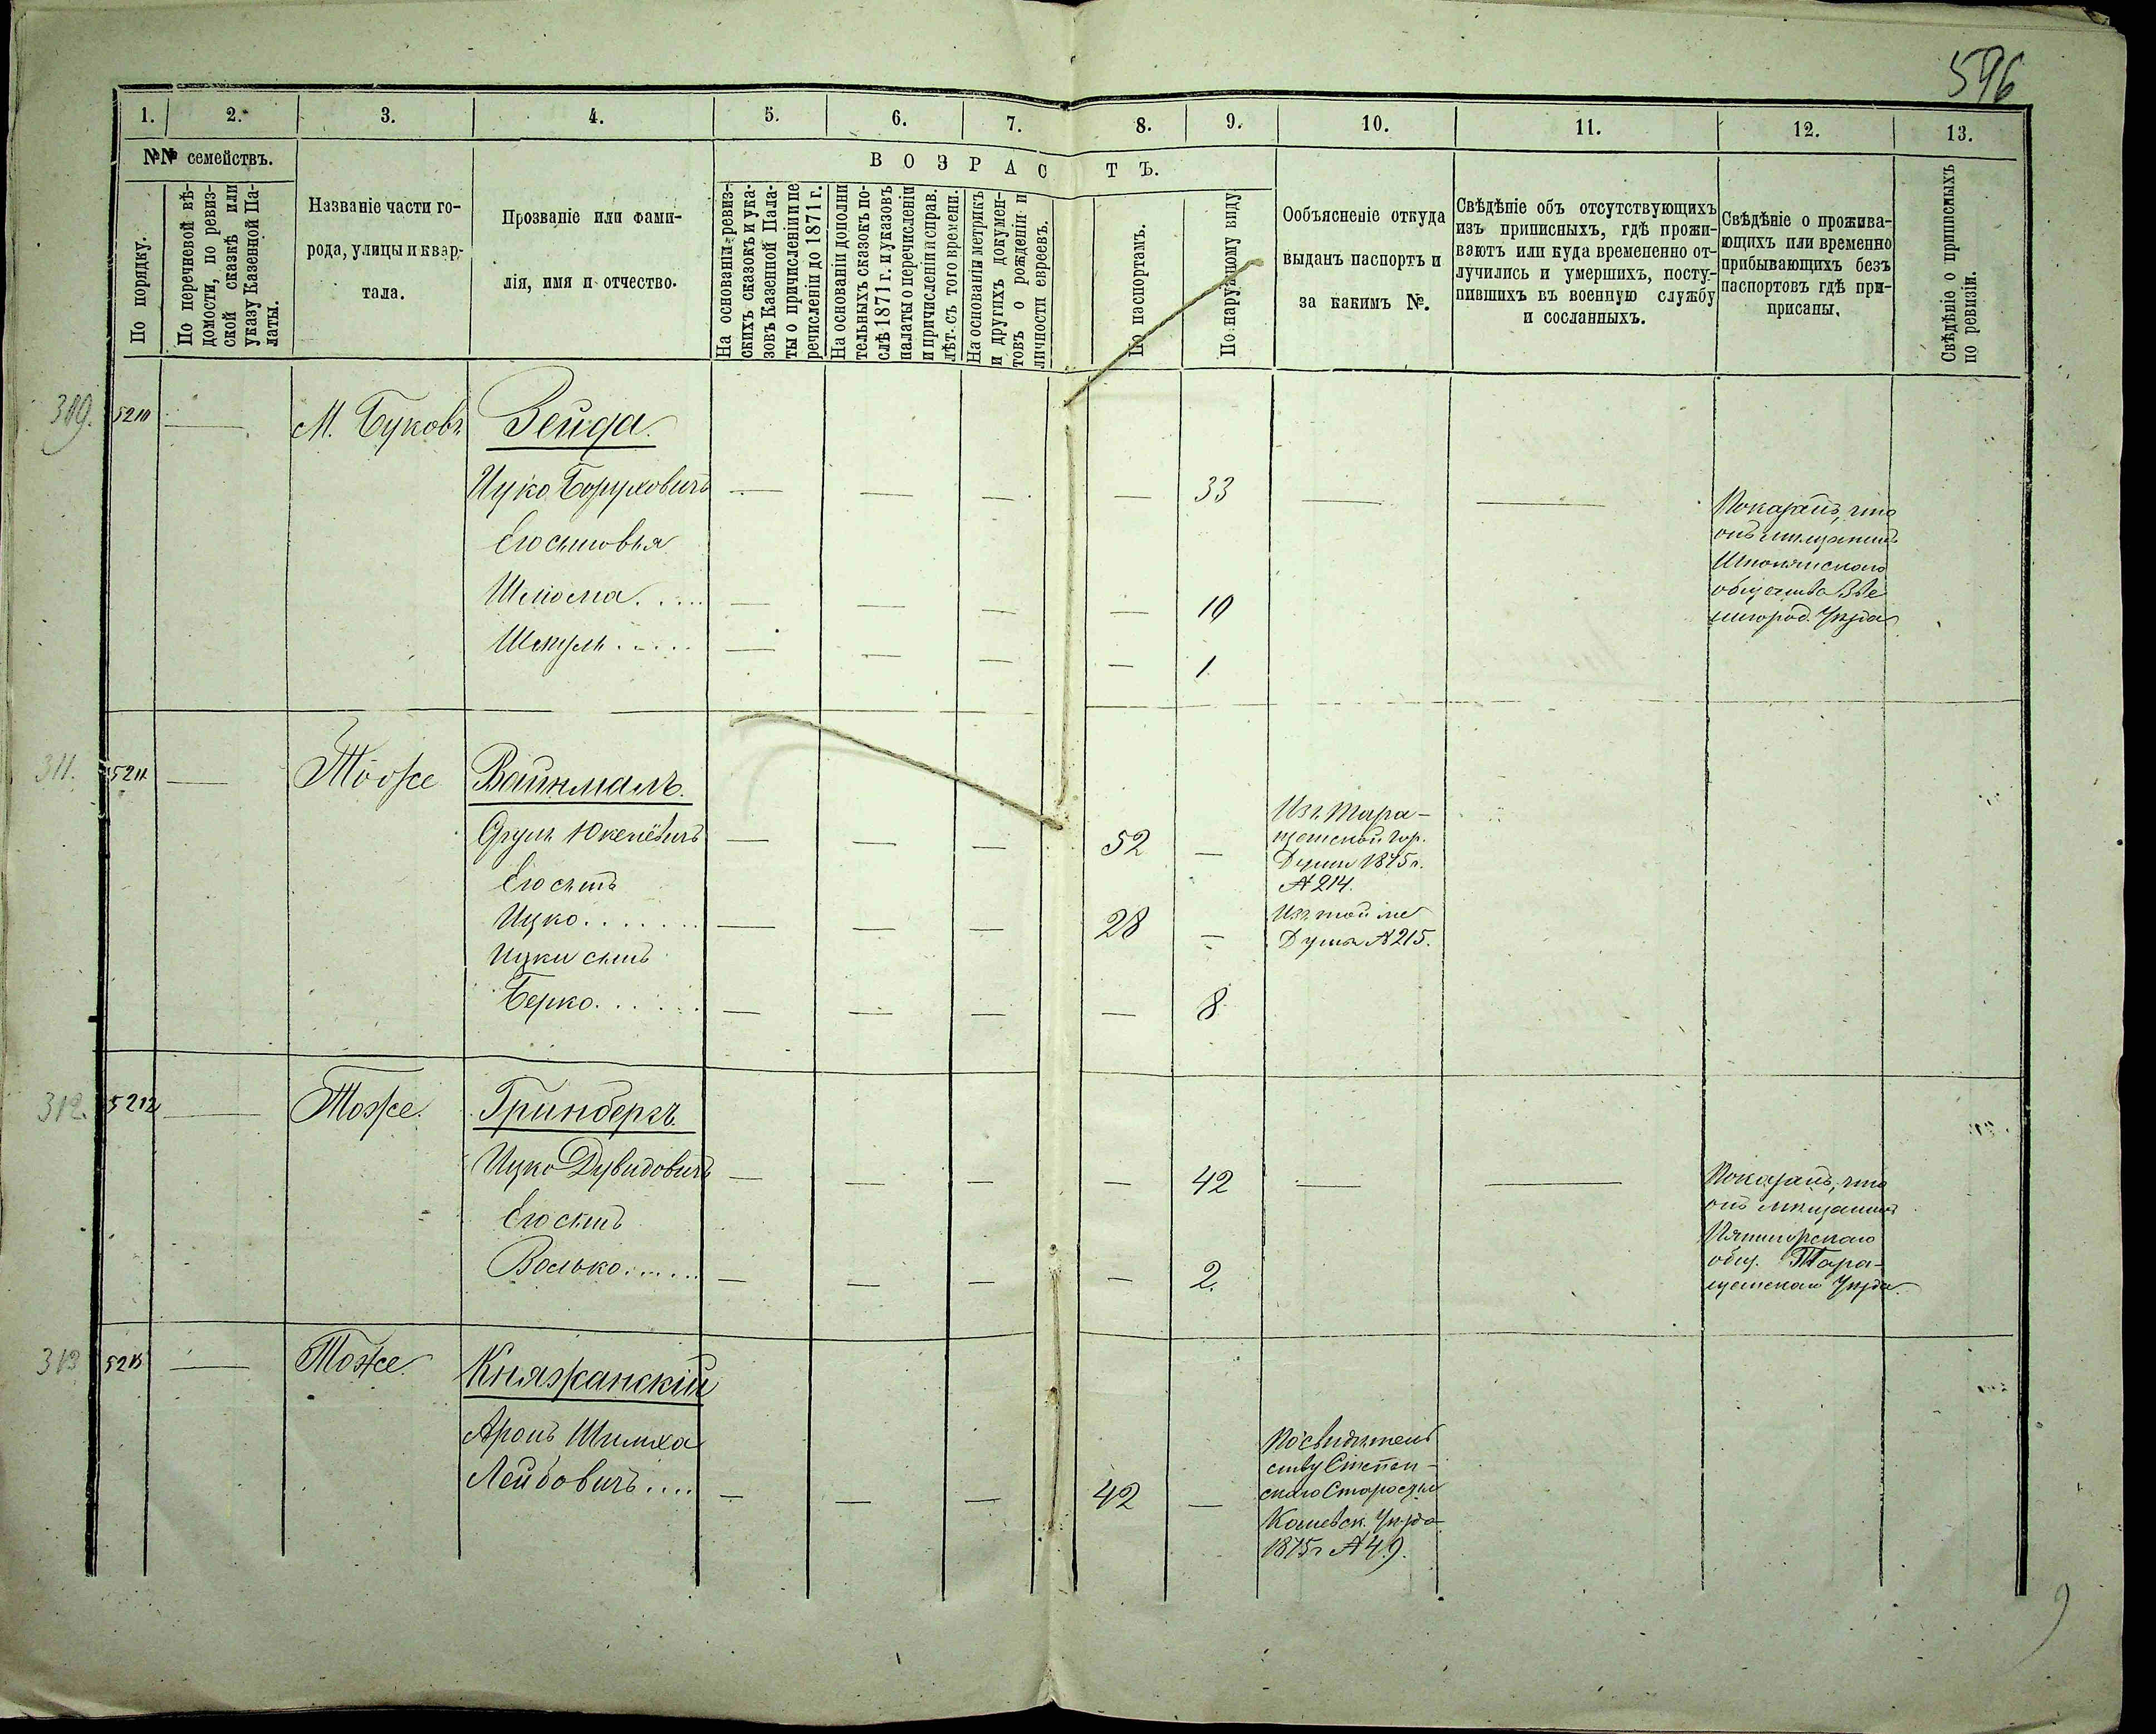 596
1. 2. 3. 4. 5. 6. 7. 8. 9. 10. 11. 12. 13.
№№ семействъ.
По порядку.
По перечневой вѣ-
домости, по ревиз-
ской сказкѣ или
указу Казенной Па-
латы.
Названіе части го-
рода, улицы и квар-
тала.
Прозваніе или фами-
лія, имя и отчество.
ВОЗРАСТЪ.
На основаніи ревиз-
скихъ сказокъ и ука-
зовъ Казенной Пала-
ты о причисленіи и пе
речисленіи до 1871 г.
На основаніи дополни
тельныхъ сказокъ по-
слѣ 1871 г. и указовъ
палаты о перечисленіи
и причисленіи и справ.
лѣт. съ того времени.
На основаніи метрикъ
и другихъ докумен-
товъ о рожденіи и
личности евреевъ.
По паспортамъ.
По наружному виду
Ообъясненіе откуда
выданъ паспортъ и
за какимъ №.
Свѣдѣніе объ отсутствующихъ
изъ приписныхъ, гдѣ прожи-
ваютъ или куда временено от-
лучились и умершихъ, посту-
пившихъ въ военную службу
и сосланныхъ.
Свѣдѣніе о прожива-
ющихъ или временно
прибывающихъ безъ
паспортовъ гдѣ при-
писаны.
Свѣдѣніе о приписныхъ
по ревизіи.
5210 — М. Буковъ Зейда
Ицко Борухович — — — — 33 — —
Его сыновья
Шлема..... — — — — 10
Шмуль..... — — — — 1
Показалъ, что
онъ мѣщанинъ
Шполянскаго
общества Зве
нигород. Уѣзда
311. 5211 — Тоже Вайнманъ.
Срул Юкелевичъ — — — 52 —
Его сынъ
Ицко....... — — — 28 —
Ицки сынъ
Берко...... — — — — 8
Изъ Тара-
щанской Гор.
Думы 1875 г.
№ 214.
Изъ той же
Думы № 215.
312. 5212 — Тоже. Гринбергъ.
Ицко Дувидовичъ — — — — 42 — —
Его сынъ
Волько...... — — — — 2.
Показалъ, что
онъ мѣщанинъ
Пятигорскаго
общ. Тара-
щанскаго Уѣзда.
313 5213 — Тоже. Княжанскій
Аронъ Шимха
Лейбовичъ.... — — — 42 —
По свидѣтель
ству
Старосты
Каневск. Уѣзда
1875 г № 49.